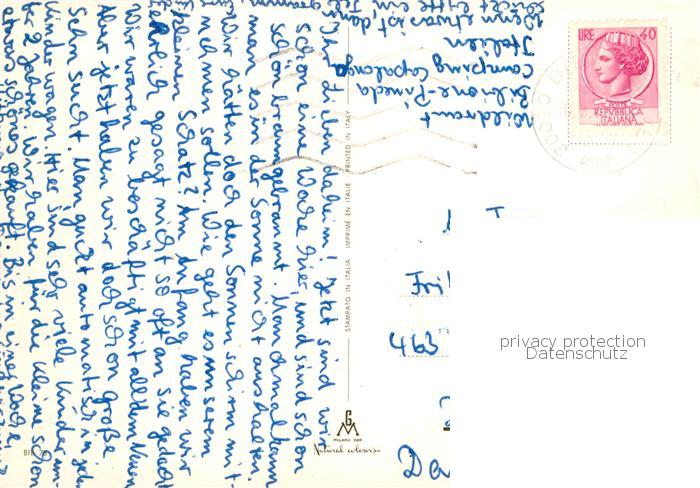 Ihr Lieben daheim! Jetzt sind wir
schon eine Woche hier, und sind schon
schön braungebrannt. Manchmal kann
man es in der Sonne nicht aushalten.
Wir hätten doch den Sonnenschirm mit-
nehmen sollen. Wie geht es unserem
kleinen Schatz? Am Anfang haben wir
ehrlich gesagt nicht so oft an sie gedacht
Wir waren zu beschäftigt mit all dem Neuen
Aber jetzt haben wir doch schon große
Sehnsucht. Man guckt automatisch in jeden
Kinderwagen. Hier sind sehr viele Kinder um
2 Jahren. Wir haben für die Kleine schon
etwas schönes gekauft. Bis in einer Woche
Wenn etwas ist, dann
schickt bitte ein Tele
gramm,
Wildraut
Bibione-Pineda
Camping Capalonga
Italien
LIRE 40
POSTE
REPVBBLICA
ITALIANA
STAMPATO IN ITALIA IMPRIMÉ EN ITALIE PRINTED IN ITALY
Fri
463
Da
privacy protection
Datenschutz
GM
MILANO
Natural colours
BIB